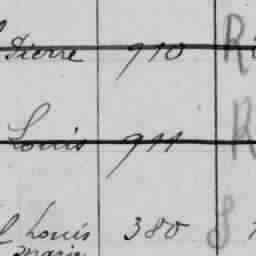 Pierre 910 R
Louis 911 R
Louis 380 S
Marie